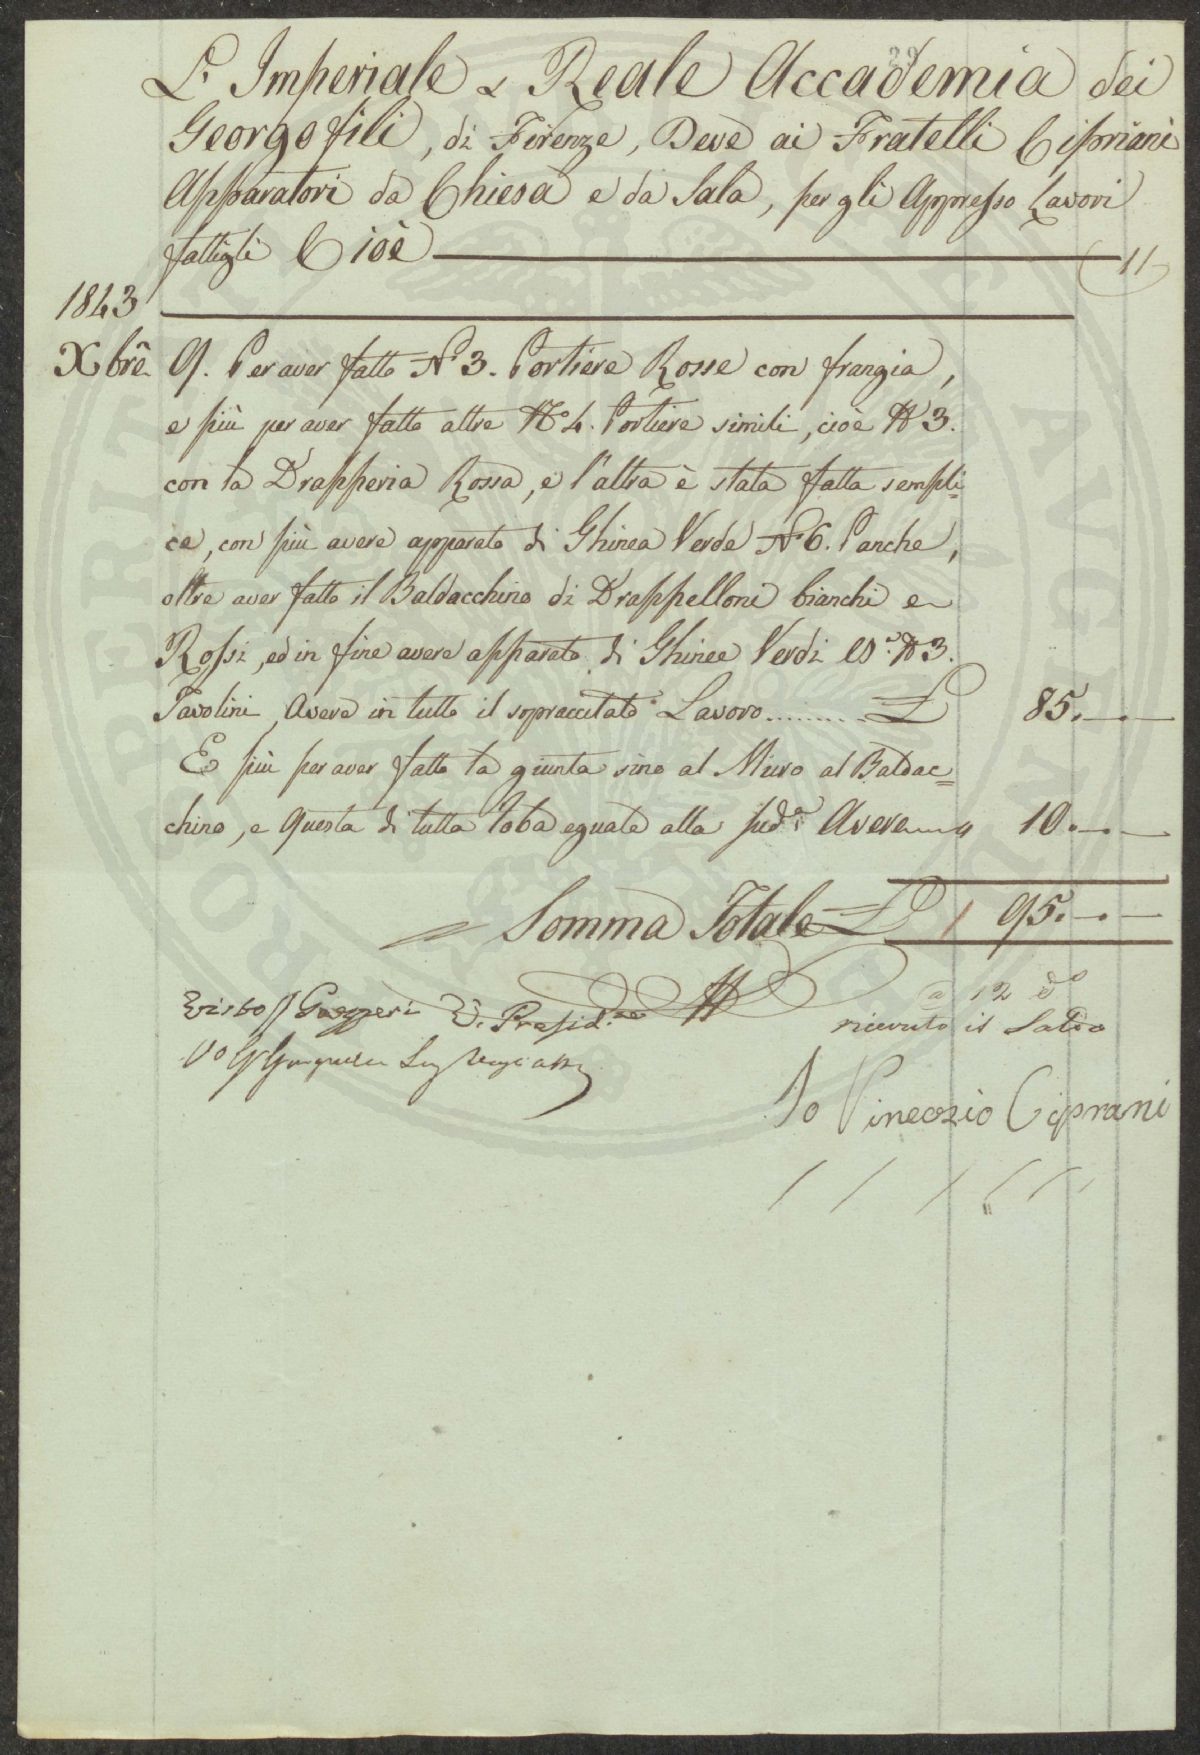 L'Imperiale e Reale Accademia dei
Georgofili, di Firenze, Deve ai Fratelli Cipriani
Apparatori da Chiesa e da Sala, per gli Appresso Lavori
fattigli Cioè
11
1843
Xbre 9. Per aver fatto N° 3. Portiere Rosse con frangia,
e più per aver fatto altre N° 4. Portiere simili, cioè N° 3.
con la Drapperia Rossa, e l'altra è stata fatta sempli=
ce, con più avere apparato di Ghinea Verde N° 6. Panche,
oltre aver fatto il Baldacchino di Drappelloni bianchi e
Rossi, ed in fine avere apparato di Ghinee Verdi N° 3.
Tavolini, Avere in tutto il sopraccitato Lavoro......... £ 85.—.—
E più per aver fatto la giunta sino al Muro al Baldac=
chino, e questa di tutta Roba eguale alla sudª Avere " 10.—.—
Somma Totale £ 95.—.—
a 12 do
Visto Gazzeri V. Presid.te
ricevuto il Saldo
Io Vineozio Ciprani